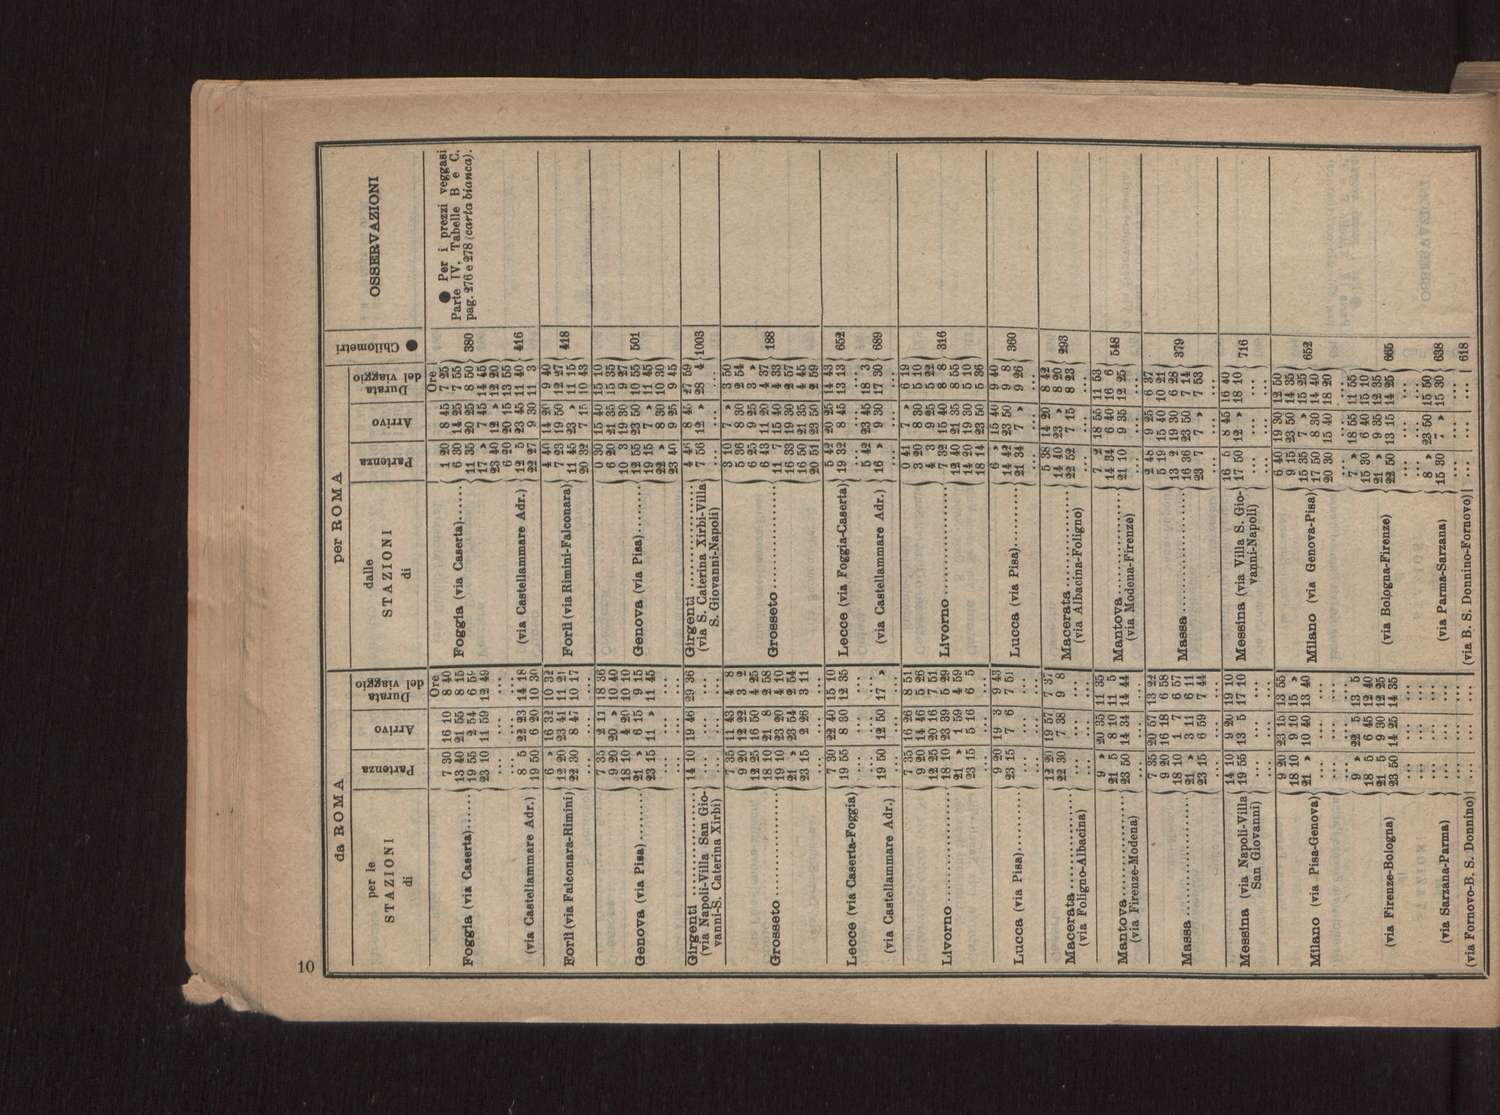 10
da ROMA
per le STAZIONI di
Partenza
Arrivo
Durata del viaggio
per ROMA
dalle STAZIONI di
Partenza
Arrivo
Durata del viaggio
Chilometri ●
OSSERVAZIONI
Ore
Foggia (via Caserta)......
7 30 16 10 8 40
13 40 21 55 8 15
19 55 2 54 6 59
23 10 11 59 12 49
... ... ...
(via Castellammare Adr.)
8 5 22 23 14 18
19 50 6 20 10 30
Ore
Foggia (via Caserta)......
1 20 8 45 7 25
6 30 14 25 7 55
11 35 20 25 8 50
17 » 7 45 14 45
23 40 12 » 12 20
380
(via Castellammare Adr.)
6 20 20 15 13 55
12 5 23 45 11 40
22 27 9 30 11 3
416
● Per i prezzi veggasi
Parte IV. Tabelle B e C.
pag. 276 e 278 (carta bianca).
Forlì (via Falconara-Rimini)
6 » 16 32 10 32
12 20 23 41 11 21
22 30 8 47 10 17
Forlì (via Rimini-Falconara)
4 40 14 20 9 40
7 23 19 50 12 27
11 45 23 » 11 15
20 32 7 15 10 43
418
Genova (via Pisa)........
7 35 2 11 18 36
9 20 20 » 10 40
18 10 4 20 10 10
21 » 6 15 9 15
23 15 11 » 11 45
Genova (via Pisa).........
0 30 15 40 15 10
6 20 21 35 15 35
10 3 19 30 9 27
12 55 23 50 10 55
19 15 7 » 11 45
22 » 8 30 10 30
23 40 9 25 9 45
501
Girgenti ...................
(via Napoli-Villa San Gio-
vanni-S. Caterina Xirbi)
14 10 19 46 29 36
... ... ...
Girgenti ...................
(via S. Caterina Xirbi-Villa
S. Giovanni-Napoli)
4 46 8 45 27 59
7 56 12 » 28 4
1003
Grosseto ...................
7 35 11 43 4 8
9 20 12 22 3 2
12 25 16 50 4 25
18 10 21 8 2 58
19 10 23 20 4 10
21 » 23 54 2 54
23 15 2 26 3 11
Grosseto ...................
3 10 7 » 3 50
5 36 8 30 2 54
6 25 9 25 3 »
6 43 11 20 4 37
11 7 15 40 4 33
16 33 19 30 2 57
16 50 21 35 4 45
20 51 23 50 2 59
188
Lecce (via Caserta-Foggia)
7 30 22 40 15 10
19 55 8 30 12 35
(via Castellammare Adr.)
19 50 12 50 17 »
Lecce (via Foggia-Caserta)
5 42 20 25 14 43
19 32 8 45 13 13
652
... ... ...
(via Castellammare Adr.)
5 42 23 45 18 3
16 » 9 30 17 30
689
Livorno ...................
7 35 16 26 8 51
9 20 14 46 5 26
12 25 20 16 7 51
18 10 23 39 5 29
21 » 1 59 4 59
23 15 5 16 6 5
Livorno ...................
0 41 7 » 6 19
3 20 8 30 5 10
4 3 9 25 5 22
7 32 15 40 8 8
12 40 21 35 8 55
14 20 19 30 5 10
18 14 23 50 5 36
316
Lucca (via Pisa)..........
9 20 19 3 9 43
23 15 7 6 7 51
Lucca (via Pisa)..........
6 » 15 40 9 40
14 42 23 50 9 8
21 34 7 » 9 26
360
Macerata ................
(via Foligno-Albacina)
12 20 19 57 7 37
22 30 7 38 9 8
... ... ...
Macerata ................
(via Albacina-Foligno)
5 38 14 20 8 42
14 40 23 » 8 20
22 52 7 15 8 23
293
Mantova.................
(via Firenze-Modena)
9 » 20 35 11 35
21 5 8 10 11 5
23 50 14 34 14 44
Mantova.................
(via Modena-Firenze)
7 2 18 55 11 53
14 34 6 40 16 6
21 10 9 35 12 25
548
Massa ...................
7 35 20 57 13 22
9 20 16 18 6 58
18 10 1 7 6 57
21 » 3 11 6 11
23 15 6 59 7 44
... ... ...
Massa ...................
2 48 9 25 6 37
5 19 15 40 10 21
13 2 19 30 6 28
16 36 23 50 7 14
23 7 7 » 7 53
... ... ...
379
Messina (via Napoli-Villa
San Giovanni)
14 10 9 20 19 10
19 55 13 5 17 10
... ... ...
Messina (via Villa S. Gio-
vanni-Napoli)
16 5 8 45 16 40
17 50 12 » 18 10
... ... ...
716
Milano (via Pisa-Genova)
9 20 23 15 13 55
18 10 9 10 15 »
21 » 10 40 13 40
... ... ...
(via Firenze-Bologna)
9 » 22 5 13 5
18 5 6 45 12 40
21 5 9 30 12 25
23 50 14 25 14 35
... ... ...
(via Sarzana-Parma)
... ... ...
(via Fornovo-B. S. Donnino)
... ... ...
Milano (via Genova-Pisa)
6 40 19 30 12 50
9 15 23 50 14 35
15 35 7 » 15 25
17 50 8 30 14 40
20 30 15 40 18 20
... ... ...
652
(via Bologna-Firenze)
7 » 18 55 11 55
15 30 6 40 15 10
21 » 9 35 12 35
22 50 13 15 14 25
... ... ...
665
(via Parma-Sarzana)
8 » 23 50 15 50
15 30 7 » 15 30
638
(via B. S. Donnino-Fornovo)
... ... ...
618